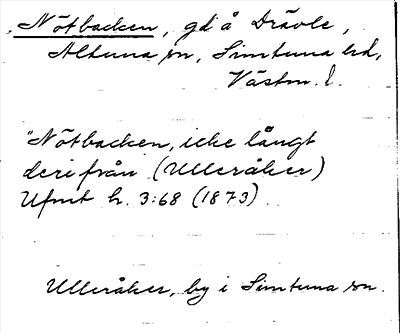 Nötbacken, gd å Drävle,
Altuna sn, Simtuna hd,
Västm. l.
"Nötbacken, icke långt
derifrån (Ulleråker)
Ufmt h. 3:68 (1873).
Ulleråker, by i Simtuna sn.